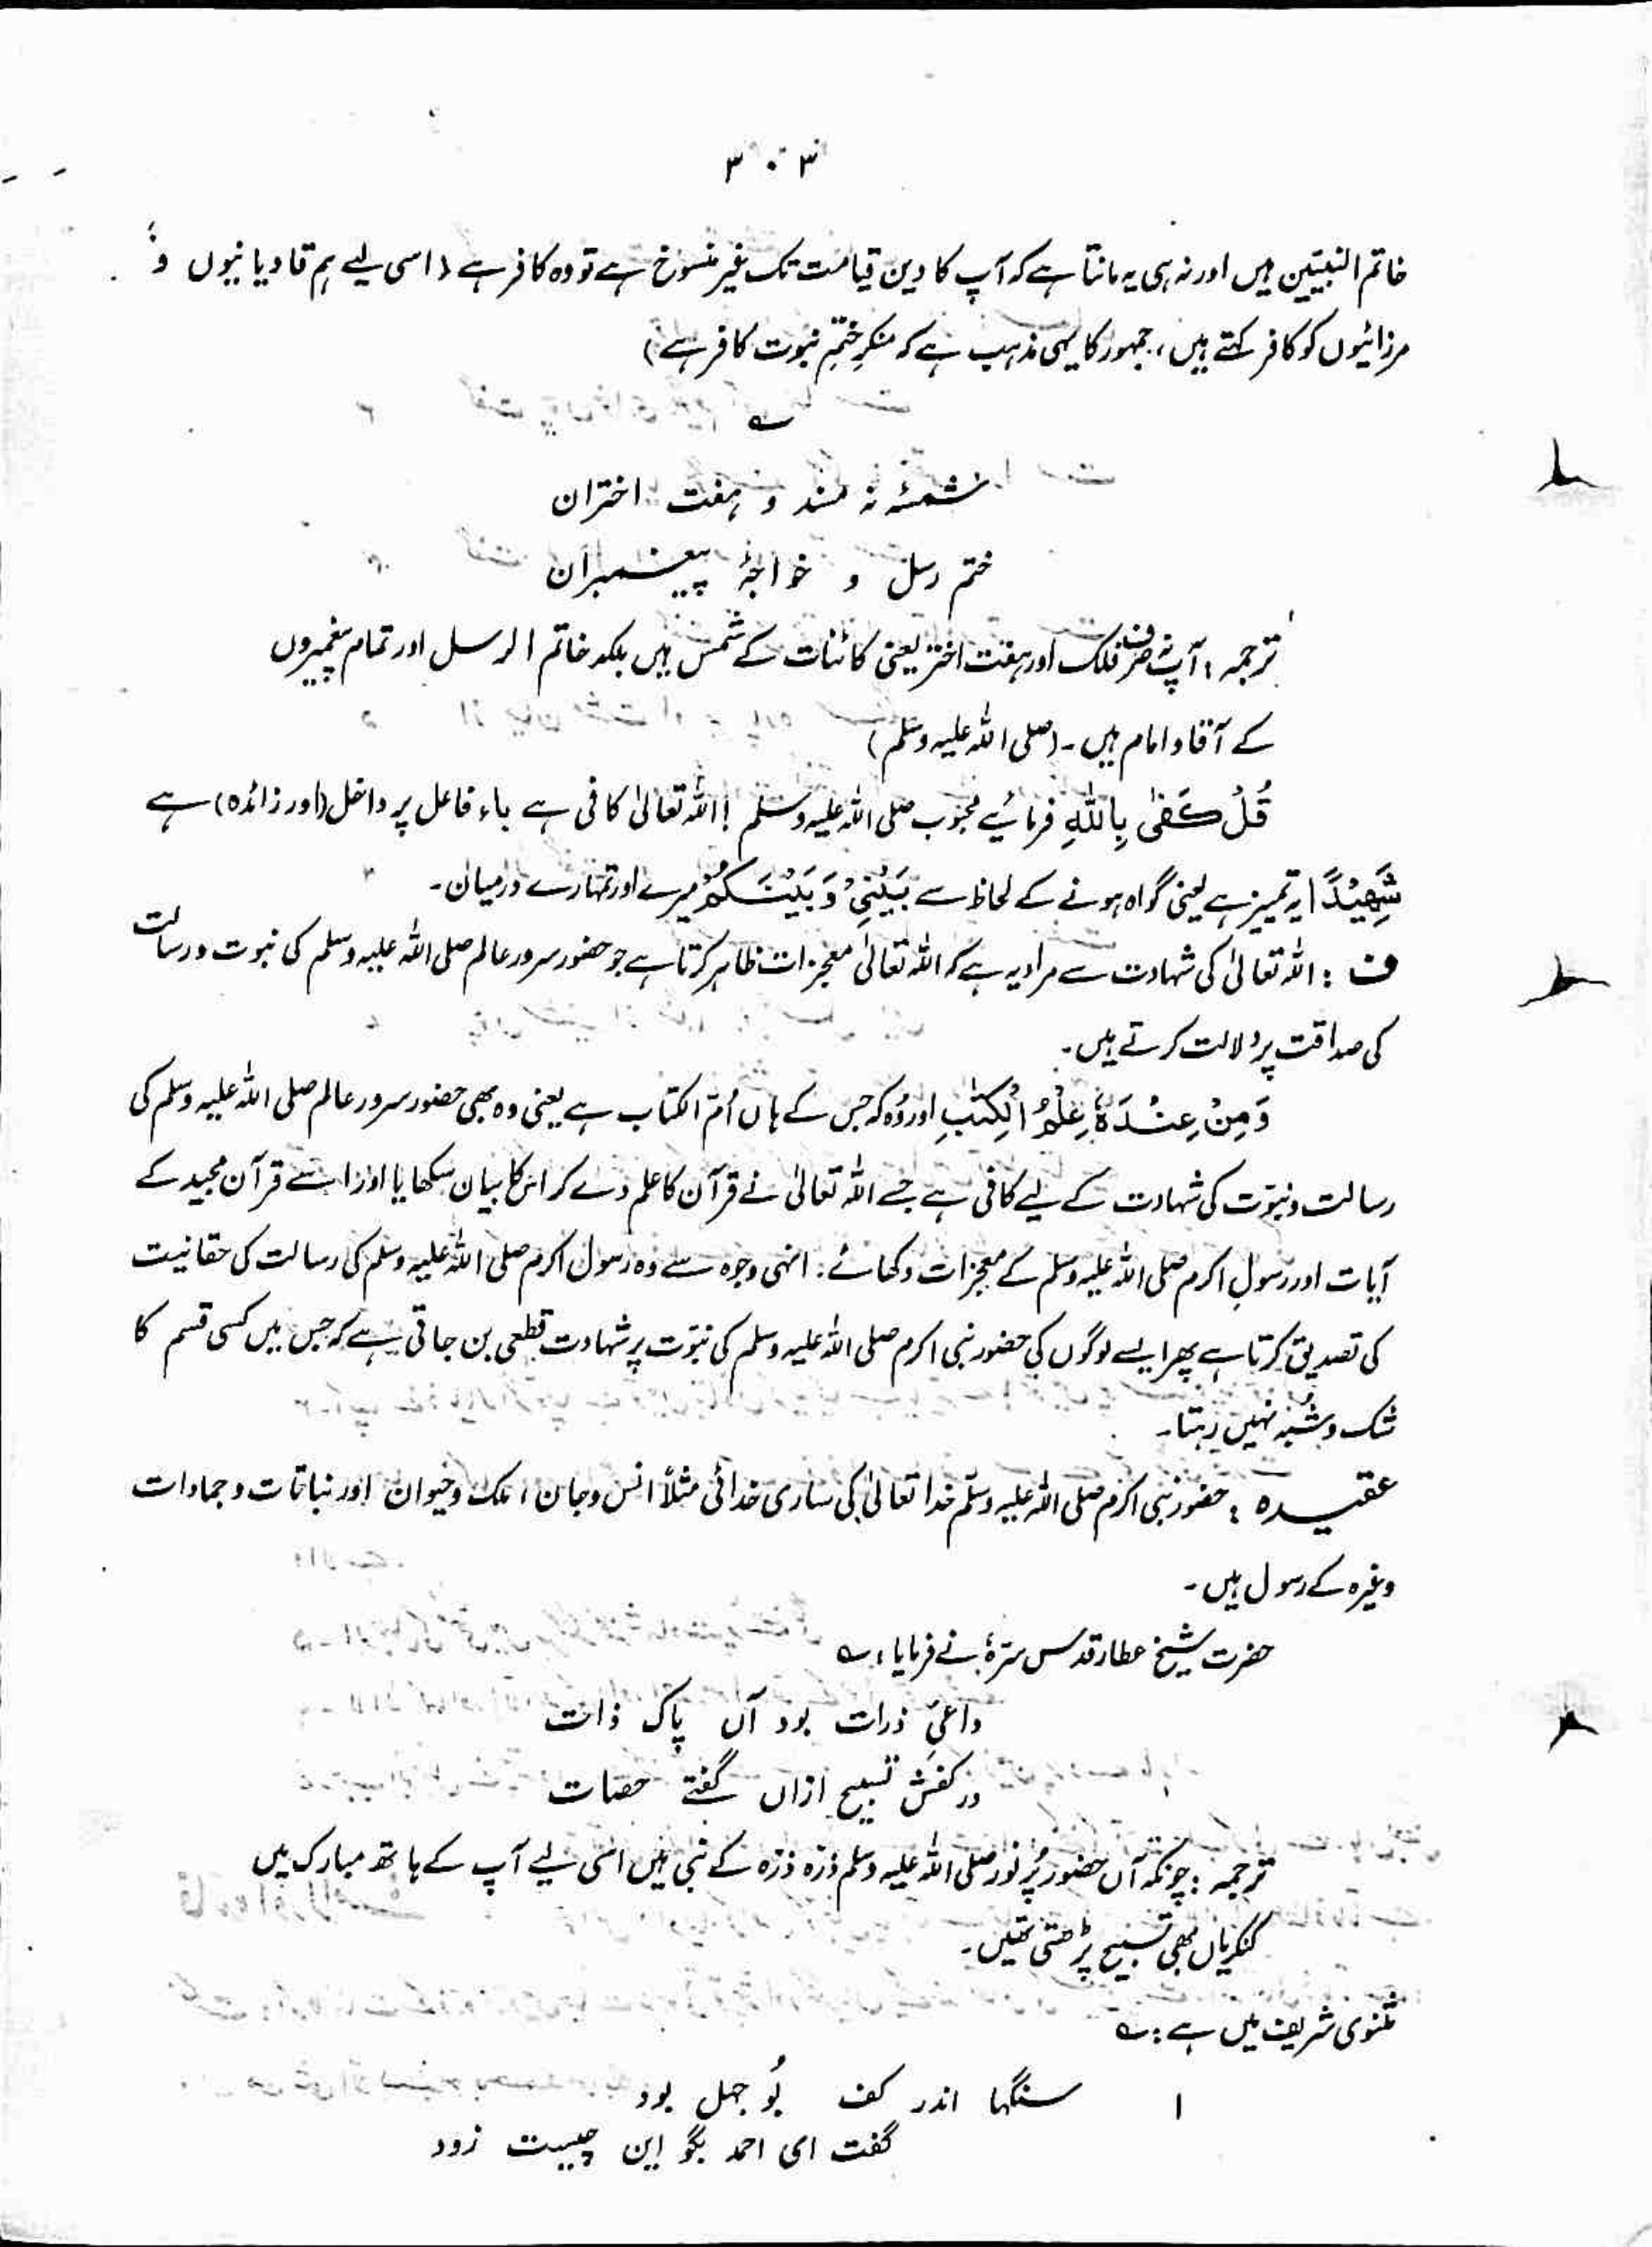 ۳۰۳
خاتم النبیین ہیں اور نہ ہی یہ مانتا ہے کہ آپ کا دین قیامت تک غیر منسوخ ہے تو وہ کافر ہے (اسی لیے ہم قادیانیوں و
مرزائیوں کو کافر کہتے ہیں، جمہور کا یہی مذہب ہے کہ منکرِ ختمِ نبوت کافر ہے)
؎
شمسۂ نہ مسند و ہفت اختران
ختم رسل و خواجۂ پیغمبران
ترجمہ : آپ نہ صرف فلک اور ہفت اختر یعنی کائنات کے شمس ہیں بلکہ خاتم الرسل اور تمام پیغمبروں
کے آقا و امام ہیں۔ (صلی اللہ علیہ وسلم)
قُلْ كَفٰى بِاللّٰهِ فرمائیے محبوب صلی اللہ علیہ وسلم ! اللہ تعالیٰ کافی ہے باء فاعل پر داخل (اور زائدہ) ہے
شَهِيْدًا یہ تمییز ہے یعنی گواہ ہونے کے لحاظ سے بَيْنِيْ وَ بَيْنَكُمْ میرے اور تمہارے درمیان۔
ف : اللہ تعالیٰ کی شہادت سے مراد یہ ہے کہ اللہ تعالیٰ معجزات ظاہر کرتا ہے جو حضور سرور عالم صلی اللہ علیہ وسلم کی نبوت و رسالت
کی صداقت پر دلالت کرتے ہیں۔
وَمِنْ عِنْدَهٗ عِلْمُ الْكِتٰبِ اور وہ کہ جس کے ہاں اُم الکتاب ہے یعنی وہ بھی حضور سرور عالم صلی اللہ علیہ وسلم کی
رسالت و نبوّت کی شہادت کے لیے کافی ہے جسے اللہ تعالیٰ نے قرآن کا علم دے کر اس کا بیان سکھایا اور اسے قرآن مجید کے
آیات اور رسولِ اکرم صلی اللہ علیہ وسلم کے معجزات دکھائے۔ انہی وجوہ سے وہ رسول اکرم صلی اللہ علیہ وسلم کی رسالت کی حقانیت
کی تصدیق کرتا ہے پھر ایسے لوگوں کی حضور نبی اکرم صلی اللہ علیہ وسلم کی نبوّت پر شہادت قطعی بن جاتی ہے کہ جس میں کسی قسم کا
شک و شبہ نہیں رہتا۔
عقیدہ : حضور نبی اکرم صلی اللہ علیہ وسلم خدا تعالیٰ کی ساری خدائی مثلاً انس و جان ، ملک و حیوان اور نباتات و جمادات
وغیرہ کے رسول ہیں۔
حضرت شیخ عطار قدس سرّہٗ نے فرمایا : ؎
داعیِ ذرات بود آں پاک ذات
در کفش تسبیح ازاں گفتے حصات
ترجمہ : چونکہ آں حضور پُرنور صلی اللہ علیہ وسلم ذرّہ ذرّہ کے نبی ہیں اسی لیے آپ کے ہاتھ مبارک میں
کنکریاں بھی تسبیح پڑھتی تھیں۔
مثنوی شریف میں ہے : ؎
۱ سنگہا اندر کف بُو جہل بود
گفت ای احمد بگو این چیست زود